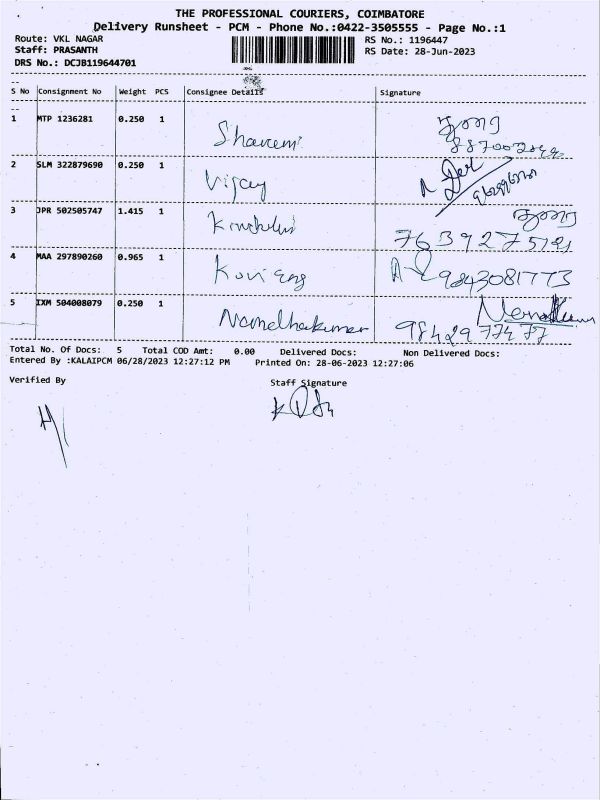 THE PROFESSIONAL COURIERS, COIMBATORE
Delivery Runsheet - PCM - Phone No.:0422-3505555 - Page No.:1
Route: VKL NAGAR RS No.: 1196447
Staff: PRASANTH RS Date: 28-Jun-2023
DRS No.: DCJB119644701
S No Consignment No Weight PCS Consignee Details Signature
1 MTP 1236281 0.250 1
2 SLM 322879690 0.250 1 Vijay
3 JPR 502505747 1.415 1
4 MAA 297890260 0.965 1 9843081773
5 IXM 504008079 0.250 1 98429 77477
Total No. Of Docs: 5 Total COD Amt: 0.00 Delivered Docs: Non Delivered Docs:
Entered By :KALAIPCM 06/28/2023 12:27:12 PM Printed On: 28-06-2023 12:27:06
Verified By Staff Signature